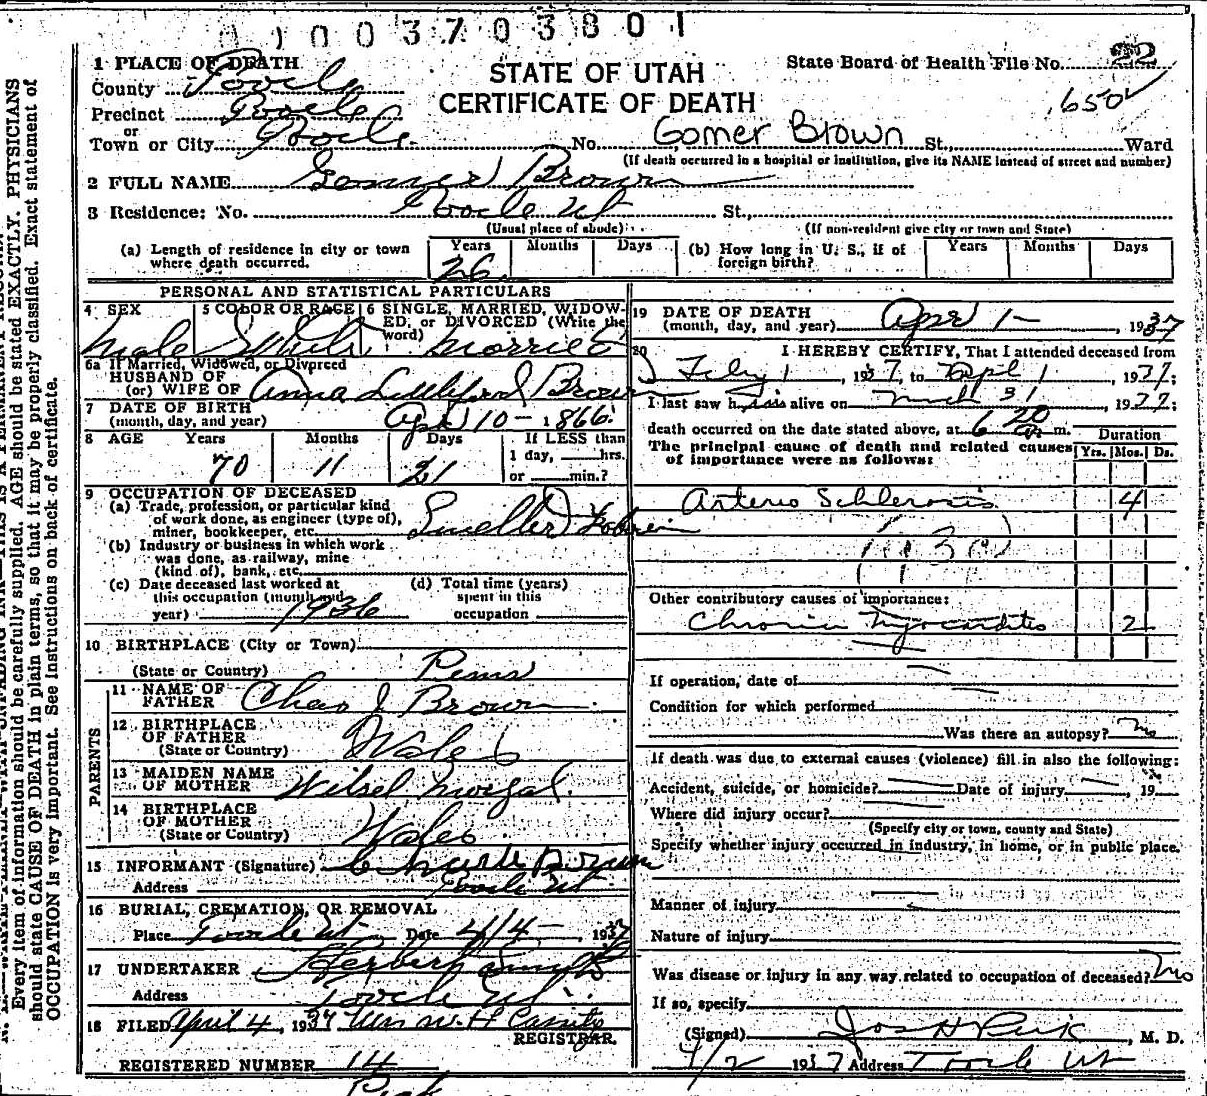 003703801
1 PLACE OF DEATH
STATE OF UTAH
CERTIFICATE OF DEATH
State Board of Health File No. 22
650
County Tooele
Precinct Tooele
or
Town or City Tooele No. Gomer Brown St., Ward
(If death occurred in a hospital or institution, give its NAME instead of street and number)
2 FULL NAME Gomer Brown
3 Residence: No. Tooele Ut St.,
(Usual place of abode) (If non-resident give city or town and State)
(a) Length of residence in city or town where death occurred. Years 26 Months Days
(b) How long in U. S., if of foreign birth? Years Months Days
PERSONAL AND STATISTICAL PARTICULARS
4 SEX Male
5 COLOR OR RACE White
6 SINGLE, MARRIED, WIDOWED, or DIVORCED (Write the word) Married
6a If Married, Widowed, or Divorced
HUSBAND OF
(or) WIFE OF Anna Brown
7 DATE OF BIRTH
(month, day, and year) Apr 10 - 1866
8 AGE Years 70 Months 11 Days 21
If LESS than
1 day, hrs.
or min.?
9 OCCUPATION OF DECEASED
(a) Trade, profession, or particular kind
of work done, as engineer (type of),
miner, bookkeeper, etc. Smelter
(b) Industry or business in which work
was done, as railway, mine
(kind of), bank, etc.
(c) Date deceased last worked at
this occupation (month and
year) 1936
(d) Total time (years)
spent in this
occupation
10 BIRTHPLACE (City or Town)
(State or Country)
PARENTS
11 NAME OF
FATHER Chas J Brown
12 BIRTHPLACE
OF FATHER
(State or Country) Wales
13 MAIDEN NAME
OF MOTHER
14 BIRTHPLACE
OF MOTHER
(State or Country) Wales
15 INFORMANT (Signature) Brown
Address Tooele Ut
16 BURIAL, CREMATION, OR REMOVAL
Place Tooele Ut Date 4/4 - 1937
17 UNDERTAKER Herbert
Address Tooele Ut.
18 FILED April 4, 1937 Mrs W. H.
REGISTRAR.
REGISTERED NUMBER 14
19 DATE OF DEATH
(month, day, and year) Apr 1 - , 1937
20 I HEREBY CERTIFY, That I attended deceased from
Feby 1 1937, to Apl 1 , 1937;
I last saw h is alive on Mch 31 , 1937;
death occurred on the date stated above, at 6 20 a m.
The principal cause of death and related causes
of importance were as follows:
Duration
Yrs. Mos. Ds.
Arterio Schlerosis 4
Other contributory causes of importance:
Chronic Myocarditis 2
If operation, date of
Condition for which performed
Was there an autopsy? no
If death was due to external causes (violence) fill in also the following:
Accident, suicide, or homicide? Date of injury , 19
Where did injury occur?
(Specify city or town, county and State)
Specify whether injury occurred in industry, in home, or in public place.
Manner of injury
Nature of injury
Was disease or injury in any way related to occupation of deceased? no
If so, specify
(Signed) Jos H Peck , M. D.
4/2 1937 Address Tooele Ut
Every item of information should be carefully supplied. AGE should be stated EXACTLY. PHYSICIANS
should state CAUSE OF DEATH in plain terms, so that it may be properly classified. Exact statement of
OCCUPATION is very important. See instructions on back of certificate.